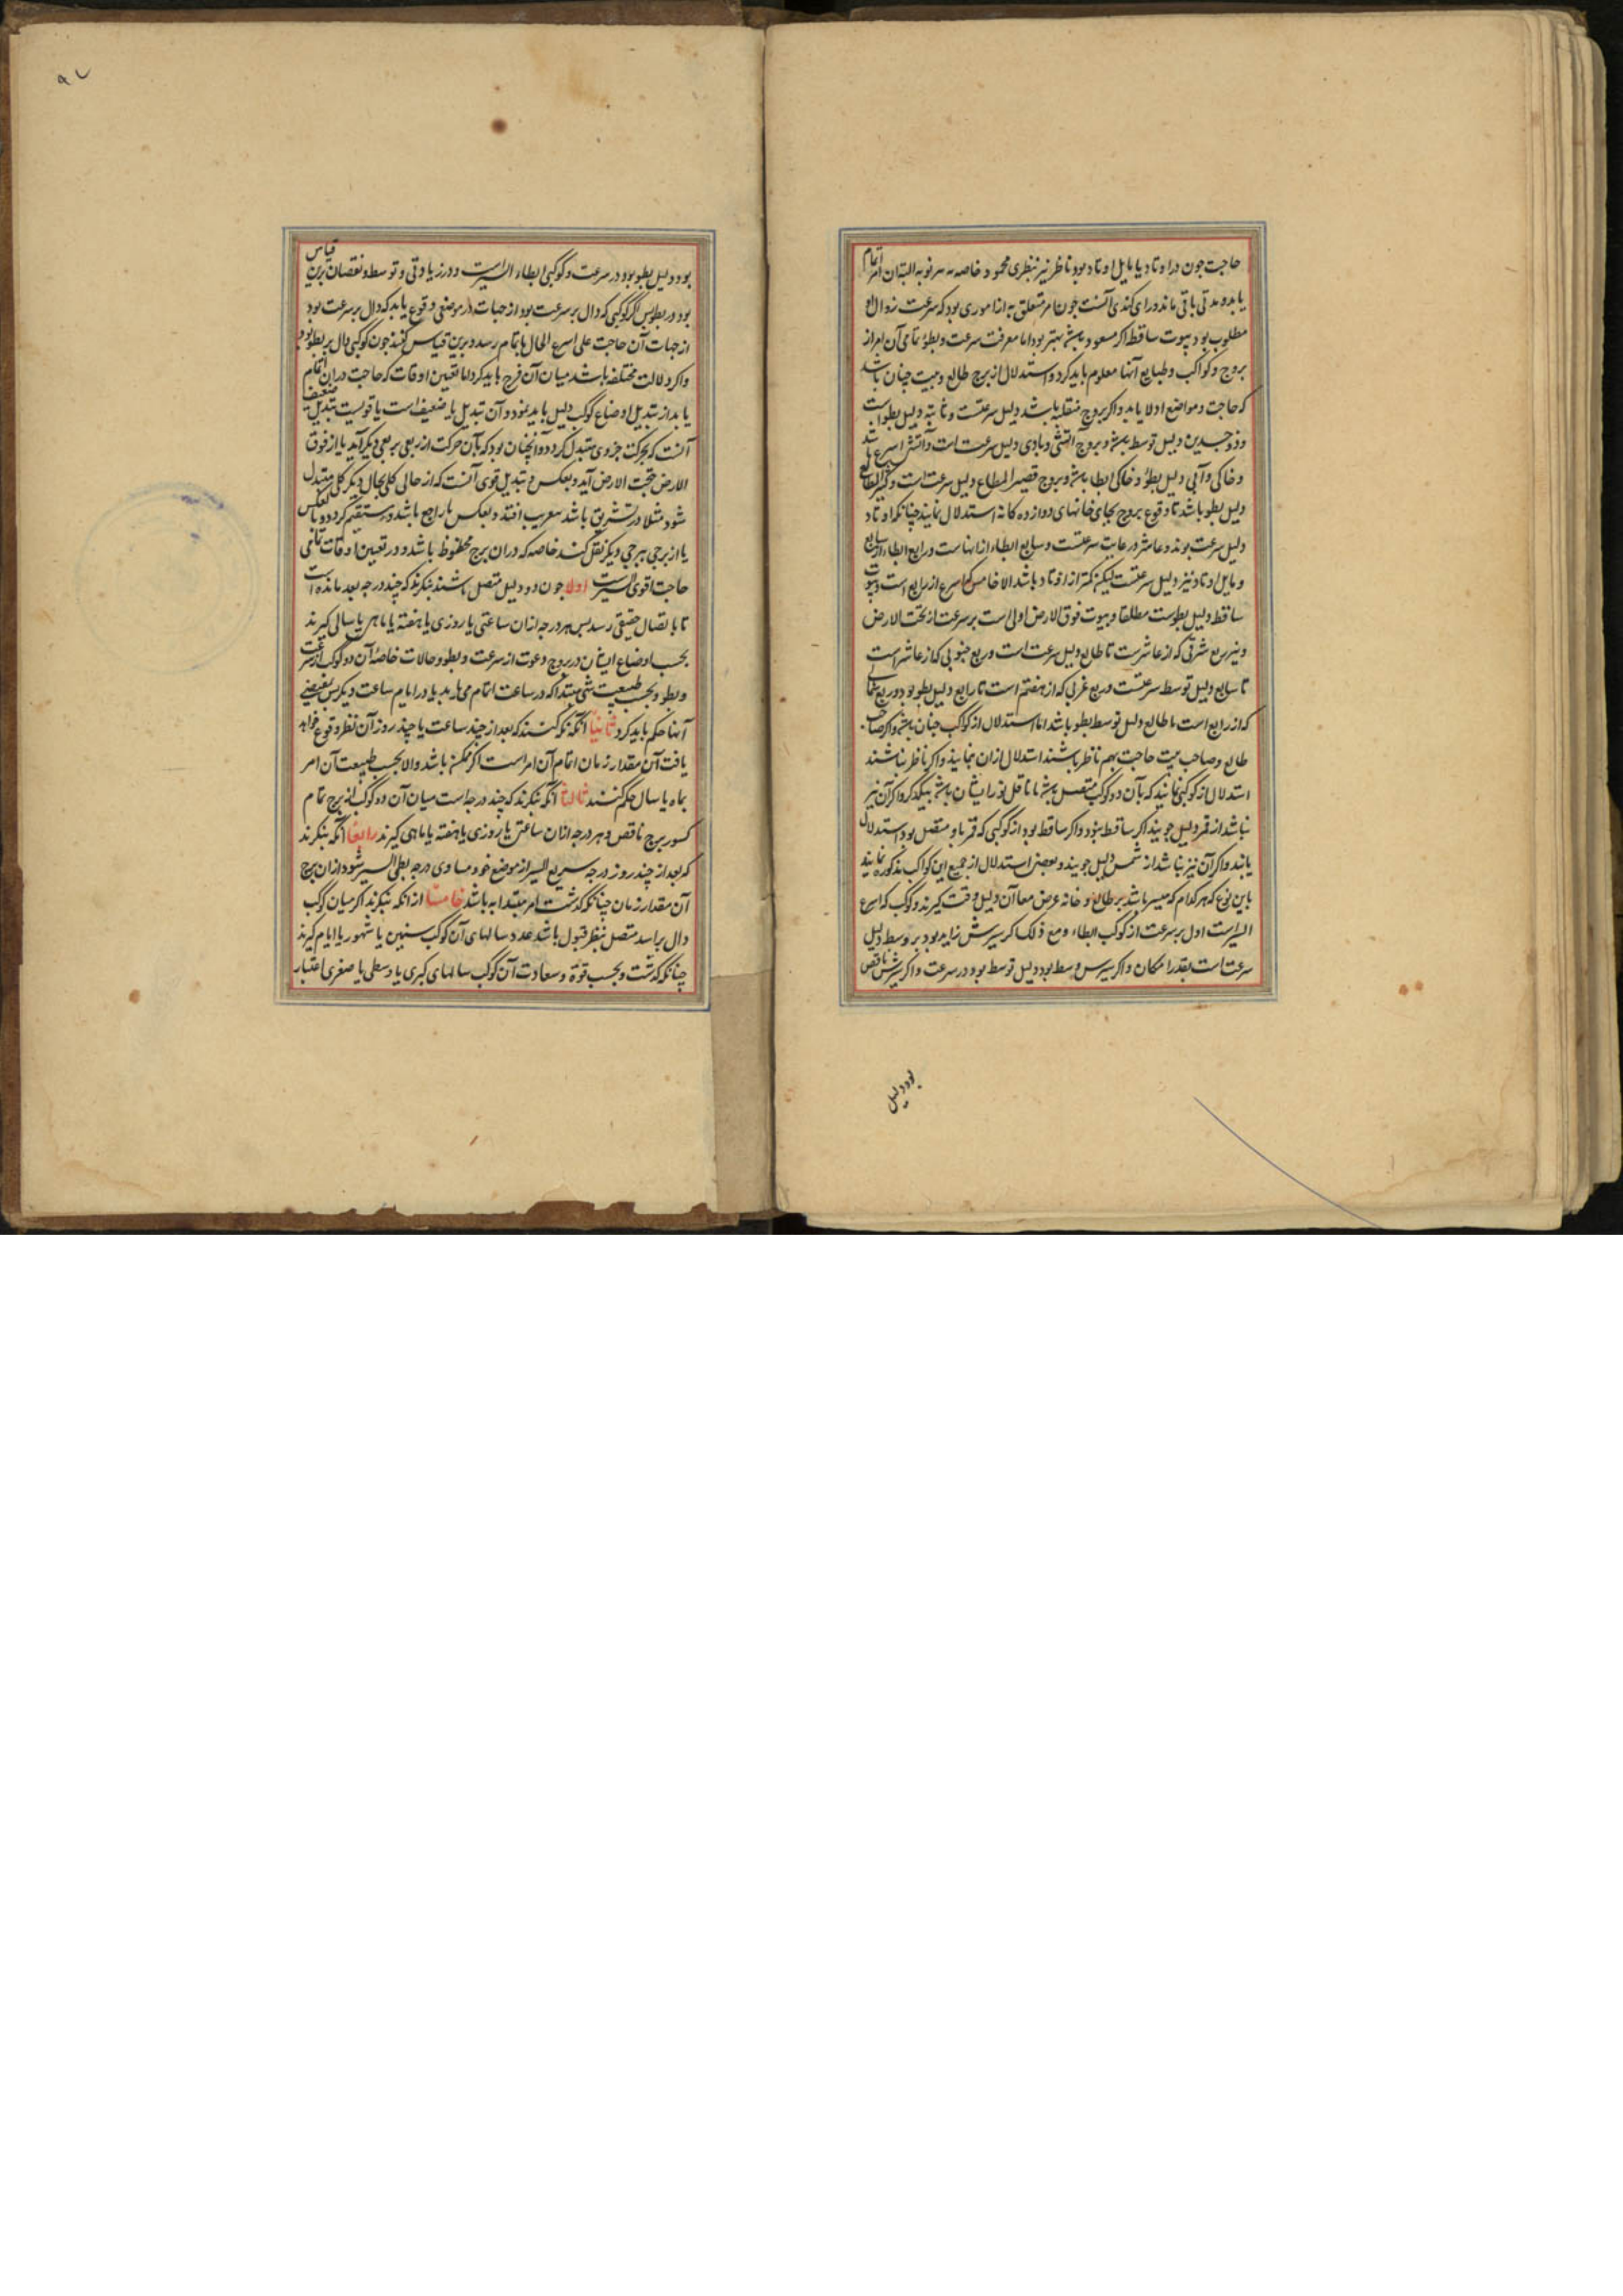 حاجت چون در اوتاد یا مایل اوتاد بود ناظر نیر بنظری محمود خاصه بر نوبه البته آن امر اتمام
یابد و مدتی باقی ماند و رای کندی آنست چون امر متعلق به از اموری بود که سرعت زوال او
مطلوب بود بیوت ساقط اگر مسعود باشد بهتر بود اما معرفت سرعت و بطؤ تمامی آن امر از
بروج و کواکب و طبایع آنها معلوم باید کرد و استدلال از برج طالع و بیت چنان باشد
که حاجت و مواضع ادلا یابد و اگر بروج منقلبه باشد دلیل سرعتست و ثابته دلیل بطو است
و ذو جسدین دلیل توسط باشد و بروج آتشی و بادی دلیل سرعت است و آتشی اسرع باشد
و خاکی و آبی دلیل بطؤ و خاکی ابطا باشد و بروج قصیر المطالع دلیل سرعت است و کثیر المطالع
دلیل بطو باشد تا وقوع بروج بجای خانهای دوازده کانه استدلال نمایند چنانکه اوتاد
دلیل سرعت بوند و عاشر در غایت سرعتست و سابع ابطاء از انهاست و رابع ابطاء از سابع
و مایل اوتاد نیز دلیل سرعتست لیکن کمتر از اوتاد باشد الا خامس که اسرع از رابع است و بیوت
ساقط دلیل بطوست مطلقا و بیوت فوق الارض اولی است بر سرعت از تحت الارض
و نیز ربع شرقی که از عاشرست تا طالع دلیل سرعت است و ربع جنوبی که از عاشر است
تا سابع دلیل توسط سرعتست و ربع غربی که از هفتم است تا رابع دلیل بطو بود و ربع شمالی
که از رابع است تا طالع دلیل توسط بطو باشد اما استدلال از کواکب چنان باشد و اگر صاحب
طالع و صاحب بیت حاجت بهم ناظر باشند استدلال از ان نمایند و اگر ناظر نباشند
استدلال از کوکبی نمایند که بآن دو کوکب متصل باشد یا ناقل نور ایشان باشد بیکدیگر و اگر آن نیز
نباشد از قمر دلیل جویند اگر ساقط نبود و اگر ساقط بود از کوکبی که قمر باو متصل بود استدلال
یابند و اگر آن نیز نباشد از شمس دلیل جویند و بعضی استدلال از جمیع این کواکب مذکوره نمایند
باین نوع که هر کدام که میسر باشد بر طالع و خانه غرض معا آن دلیل وقت گیرند و کوکب که اسرع
السیر است اول بر سرعت از کوکب ابطاء و مع ذلک اگر سیرش زاید بود بر وسط دلیل
سرعت است بقدر امکان و اگر سیرش وسط بود دلیل توسط بود در سرعت و اگر سیرش ناقص
بود دلیل
۹۷
بود دلیل بطو بود در سرعت و کوکبی ابطاء السیر است و در زیادتی و توسط و نقصان برین قیاس
بود در بطو پس اگر کوکبی که دال بر سرعت بود از جهات در موضعی وقوع یابد که دال بر سرعت بود
از جهات آن حاجت علی اسرع الحال باتمام رسد و برین قیاس کنند چون کوکبی دال بر بطو بود
و اگر دلالت مختلفه باشد میان آن مزج باید کرد اما تعیین اوقات که حاجت در آن اتمام
یابد از تبدیل اوضاع کوکب دلیل باید نمود و آن تبدیل یا ضعیف است یا قویست تبدیل ضعیف
آنست که بحرکت جزوی متبدل گردد و آنچنان بود که بآن حرکت از ربعی بربعی دیگر آید یا از فوق
الارض بتحت الارض آید و بعکس و تبدیل قوی آنست که از حالی کلی بحال دیگر کلی متبدل
شود مثلا در تشریق باشد بتغریب افتد و بعکس یا راجع باشد و مستقیم گردد و یا بعکس
یا از برجی ببرجی دیگر نقل کند خاصه که در ان برج محظوظ باشد و در تعیین اوقات تمامی
حاجت اقوی السیر است اولا چون دو دلیل متصل باشند بنگرند که چند درجه بعد مانده است
تا باتصال حقیقی رسد پس هر درجه از ان ساعتی یا روزی یا هفته یا ماهی یا سالی گیرند
بحسب اوضاع ایشان در بروج و عوت از سرعت و بطو و حالات خاصهٔ آن دو کوکب از سرعت
و بطو و بحسب طبیعت شی مبتدا که در ساعت اتمام می یابد یا در ایام ساعت و دیگر پس بمقتضی
آنها حکم باید کرد ثانیا آنکه نگه کنند که بعد از چند ساعت یا چند روز آن نظر وقوع خواهد
یافت آن مقدار زمان اتمام آن امر است اگر ممکن باشد والا بحسب طبیعت آن امر
بماه یا سال حکم کنند ثالثا آنکه بنگرند که چند درجه است میان آن دو کوکب از برج تمام
کسور برج ناقص و هر درجه از ان ساعتی یا روزی یا هفته یا ماهی گیرند رابعا آنکه بنگرند
که بعد از چند روز درجه سریع السیر از موضع خود مساوی درجه بطی السیر شود از ان برج
آن مقدار زمان چنانکه گذشت امر مبتدا به باشد خامسا از انکه بنگرند اگر میان کوکب
دال براسد متصل بنظر قبول باشد عدد سالهای آن کوکب سنین یا شهور یا ایام گیرند
چنانکه گذشت و بحسب قوة و سعادت آن کوکب سالهای کبری یا وسطی یا صغری اعتبار